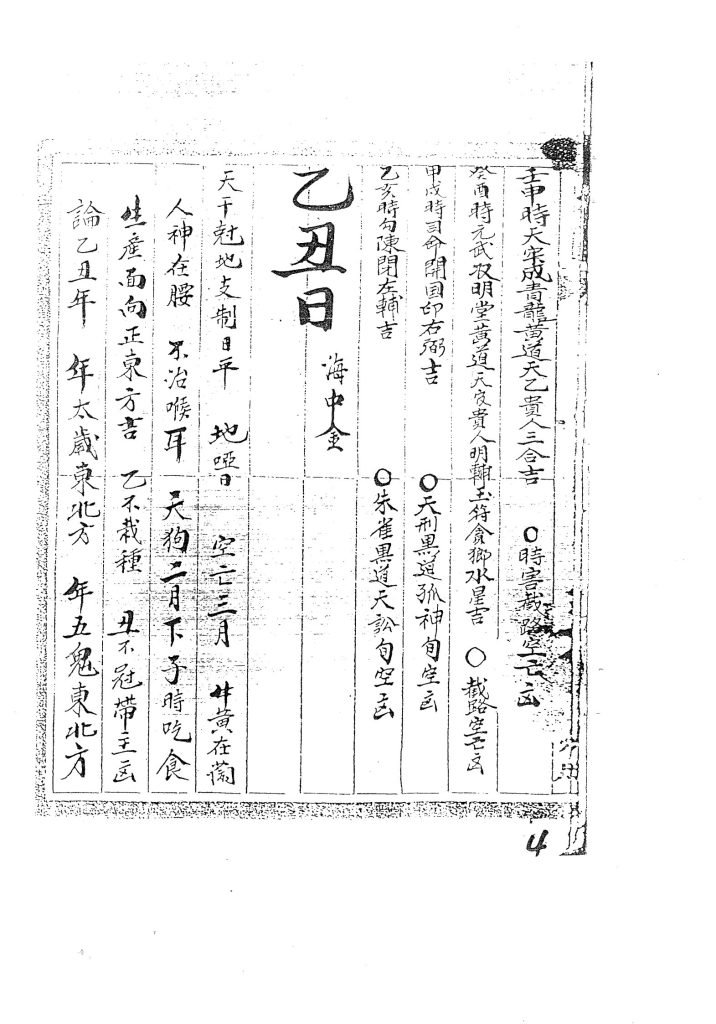 壬申時天牢成青龍黃道天乙貴人三合吉 〇時害截路空亡凶
癸酉時元武收明堂黃道天官貴人明輔玉符貪狼水星吉 〇截路空亡凶
甲戌時司命開國印右弼吉 〇天刑黑道孤神旬空凶
乙亥時勾陳閉左輔吉 〇朱雀黑道天訟旬空凶
乙丑日 海中金
天干尅地支制日平 地啞日 空亡三月 牛黃在
人神在腰 不治喉耳 天狗二月下子時吃食
生產面向正東方吉 乙不栽種 丑不冠帶主凶
論乙丑年 年太歲東北方 年五鬼東北方
4